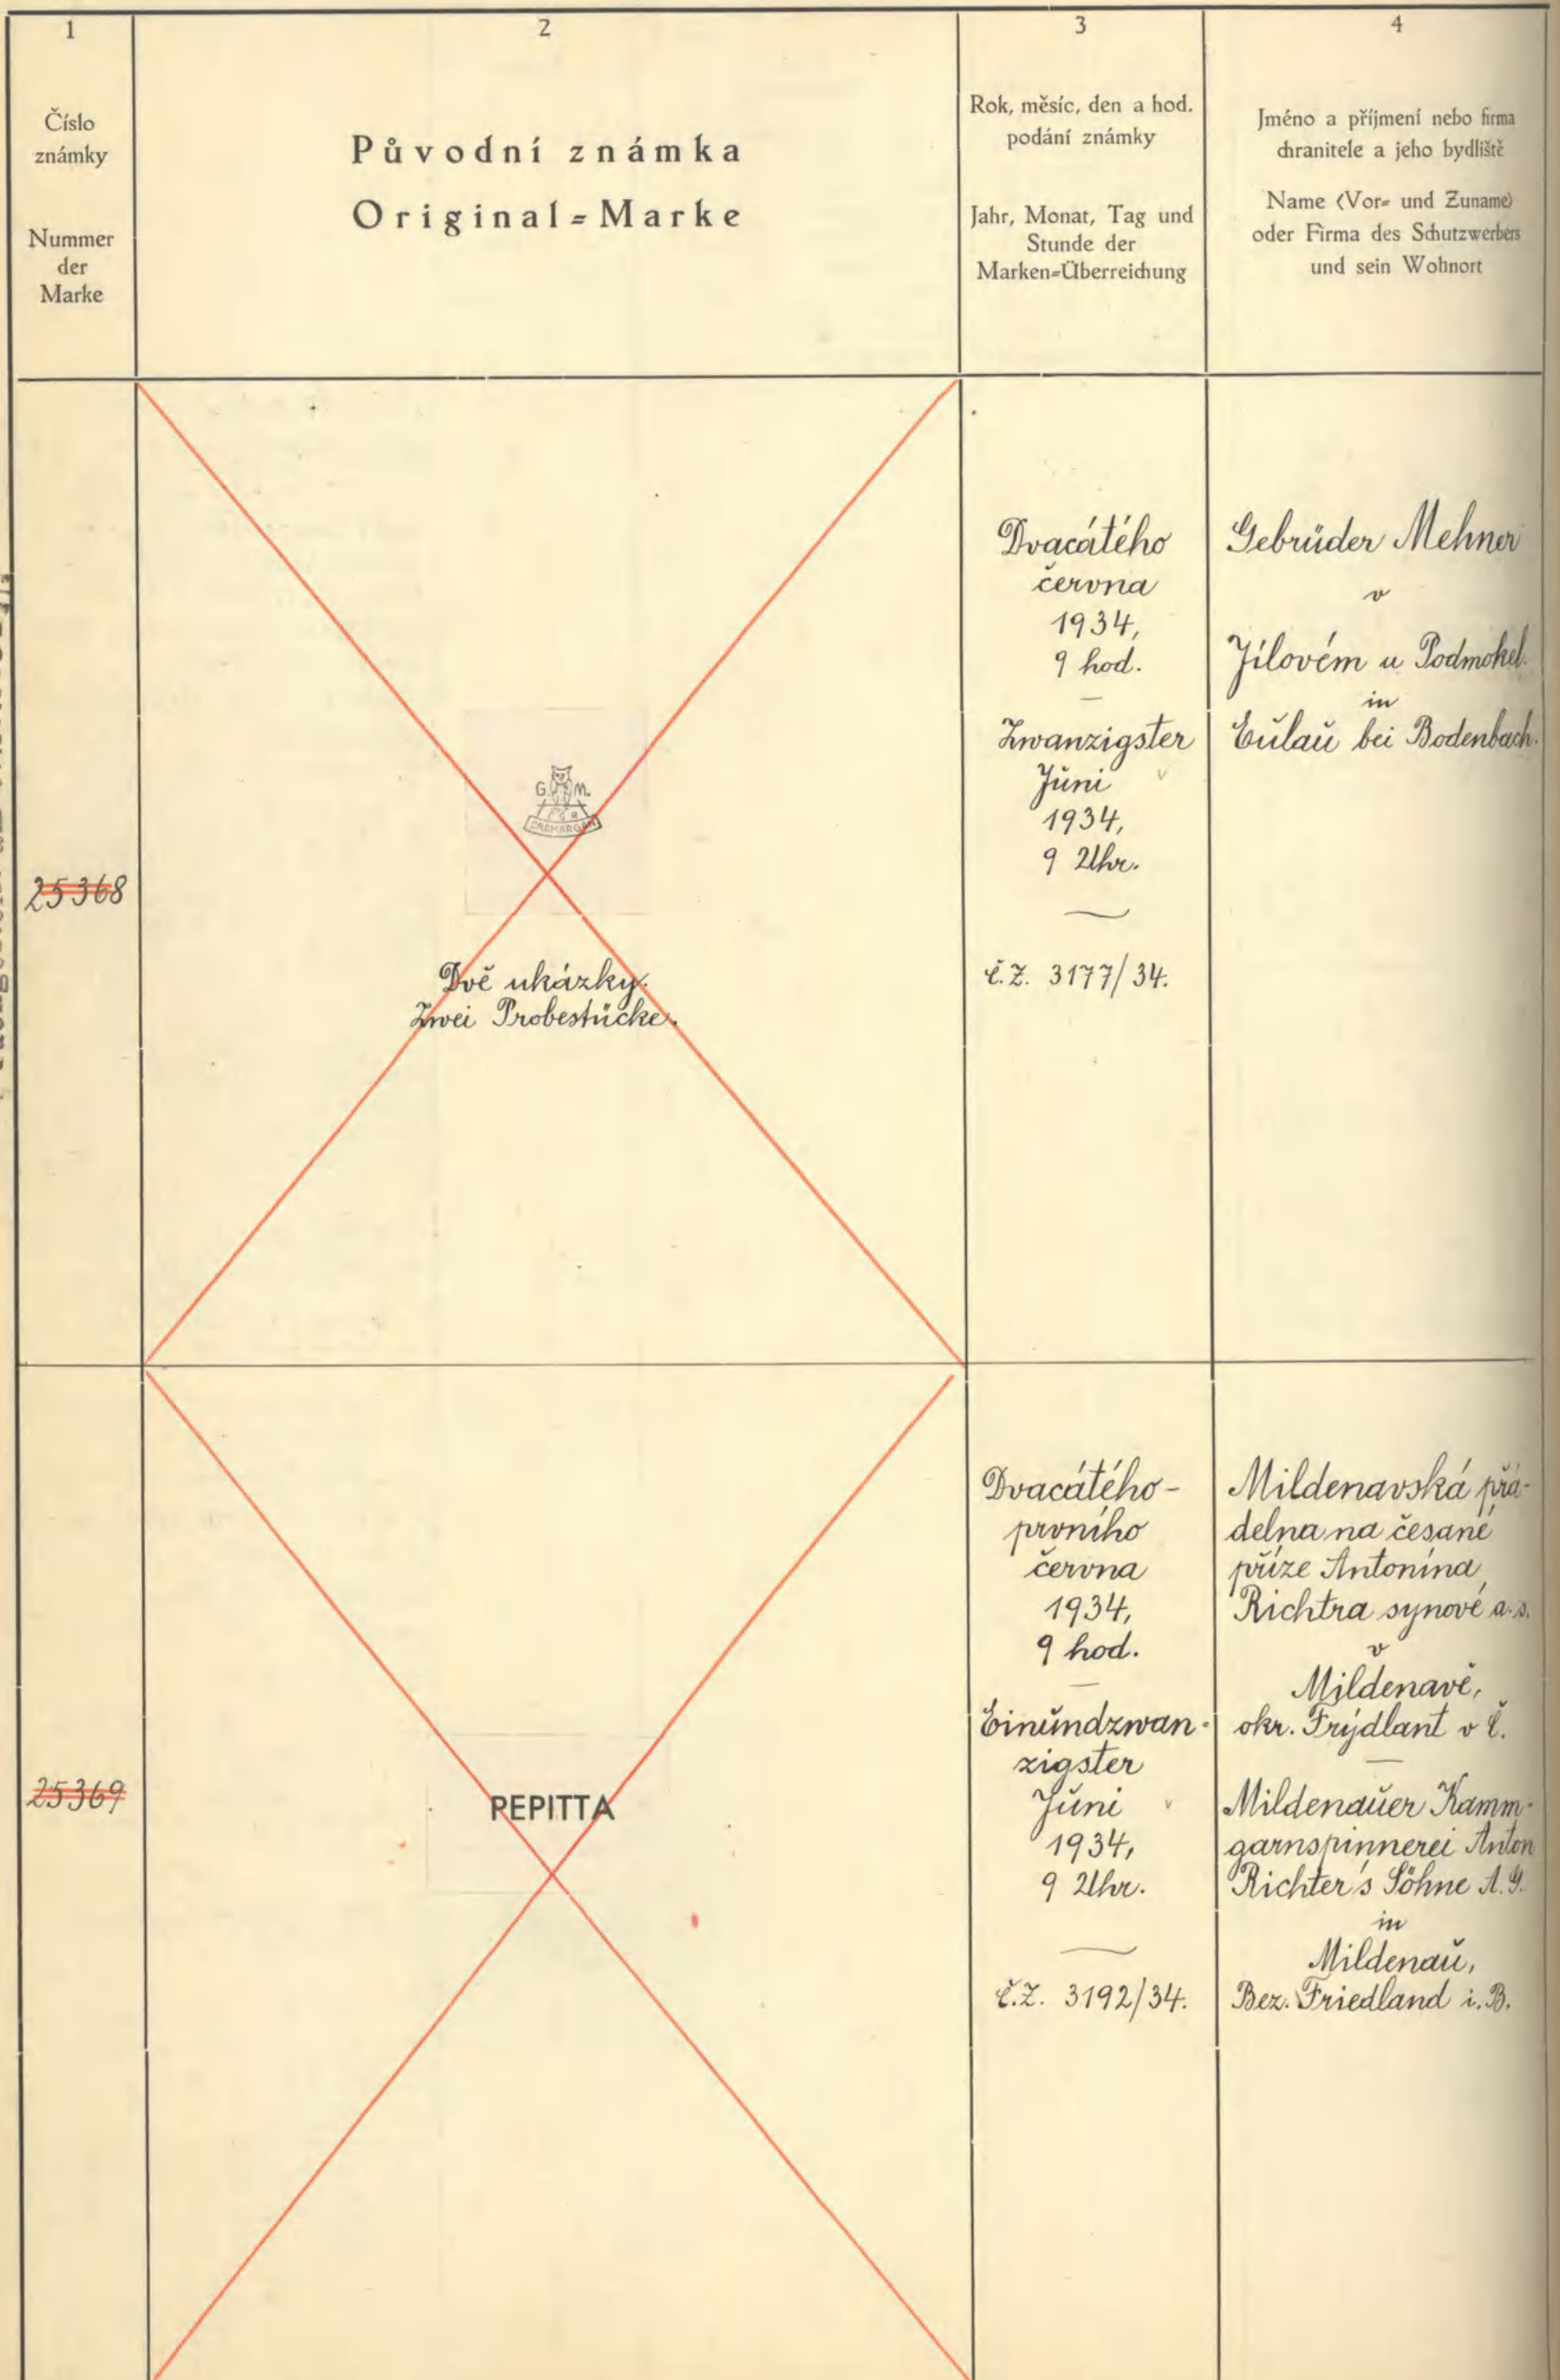 1
Číslo
známky
Nummer
der
Marke
2
Původní známka
Original=Marke
3
Rok, měsíc, den a hod.
podání známky
Jahr, Monat, Tag und
Stunde der
Marken=Überreichung
4
Jméno a příjmení nebo firma
chranitele a jeho bydliště
Name (Vor= und Zuname)
oder Firma des Schutzwerbers
und sein Wohnort
25368
G. M.
Dvě ukázky.
Zwei Probestücke.
Dvacátého
června
1934,
9 hod.
Zwanzigster
Juni
1934,
9 Uhr.
Č.Z. 3177/34.
Gebrüder Mehner
v
Jílovém u Podmokel.
in
Eulau bei Bodenbach.
25369
PEPITTA
Dvacátého-
prvního
června
1934,
9 hod.
Einundzwan-
zigster
Juni
1934,
9 Uhr.
Č.Z. 3192/34.
Mildenavská přá-
delna na česané
příze Antonína
Richtra synové a.s.
v
Mildenavě,
okr. Frýdlant v Č.
Mildenauer Kamm-
garnspinnerei Anton
Richter's Söhne A.G.
in
Mildenau,
Bez. Friedland i. B.